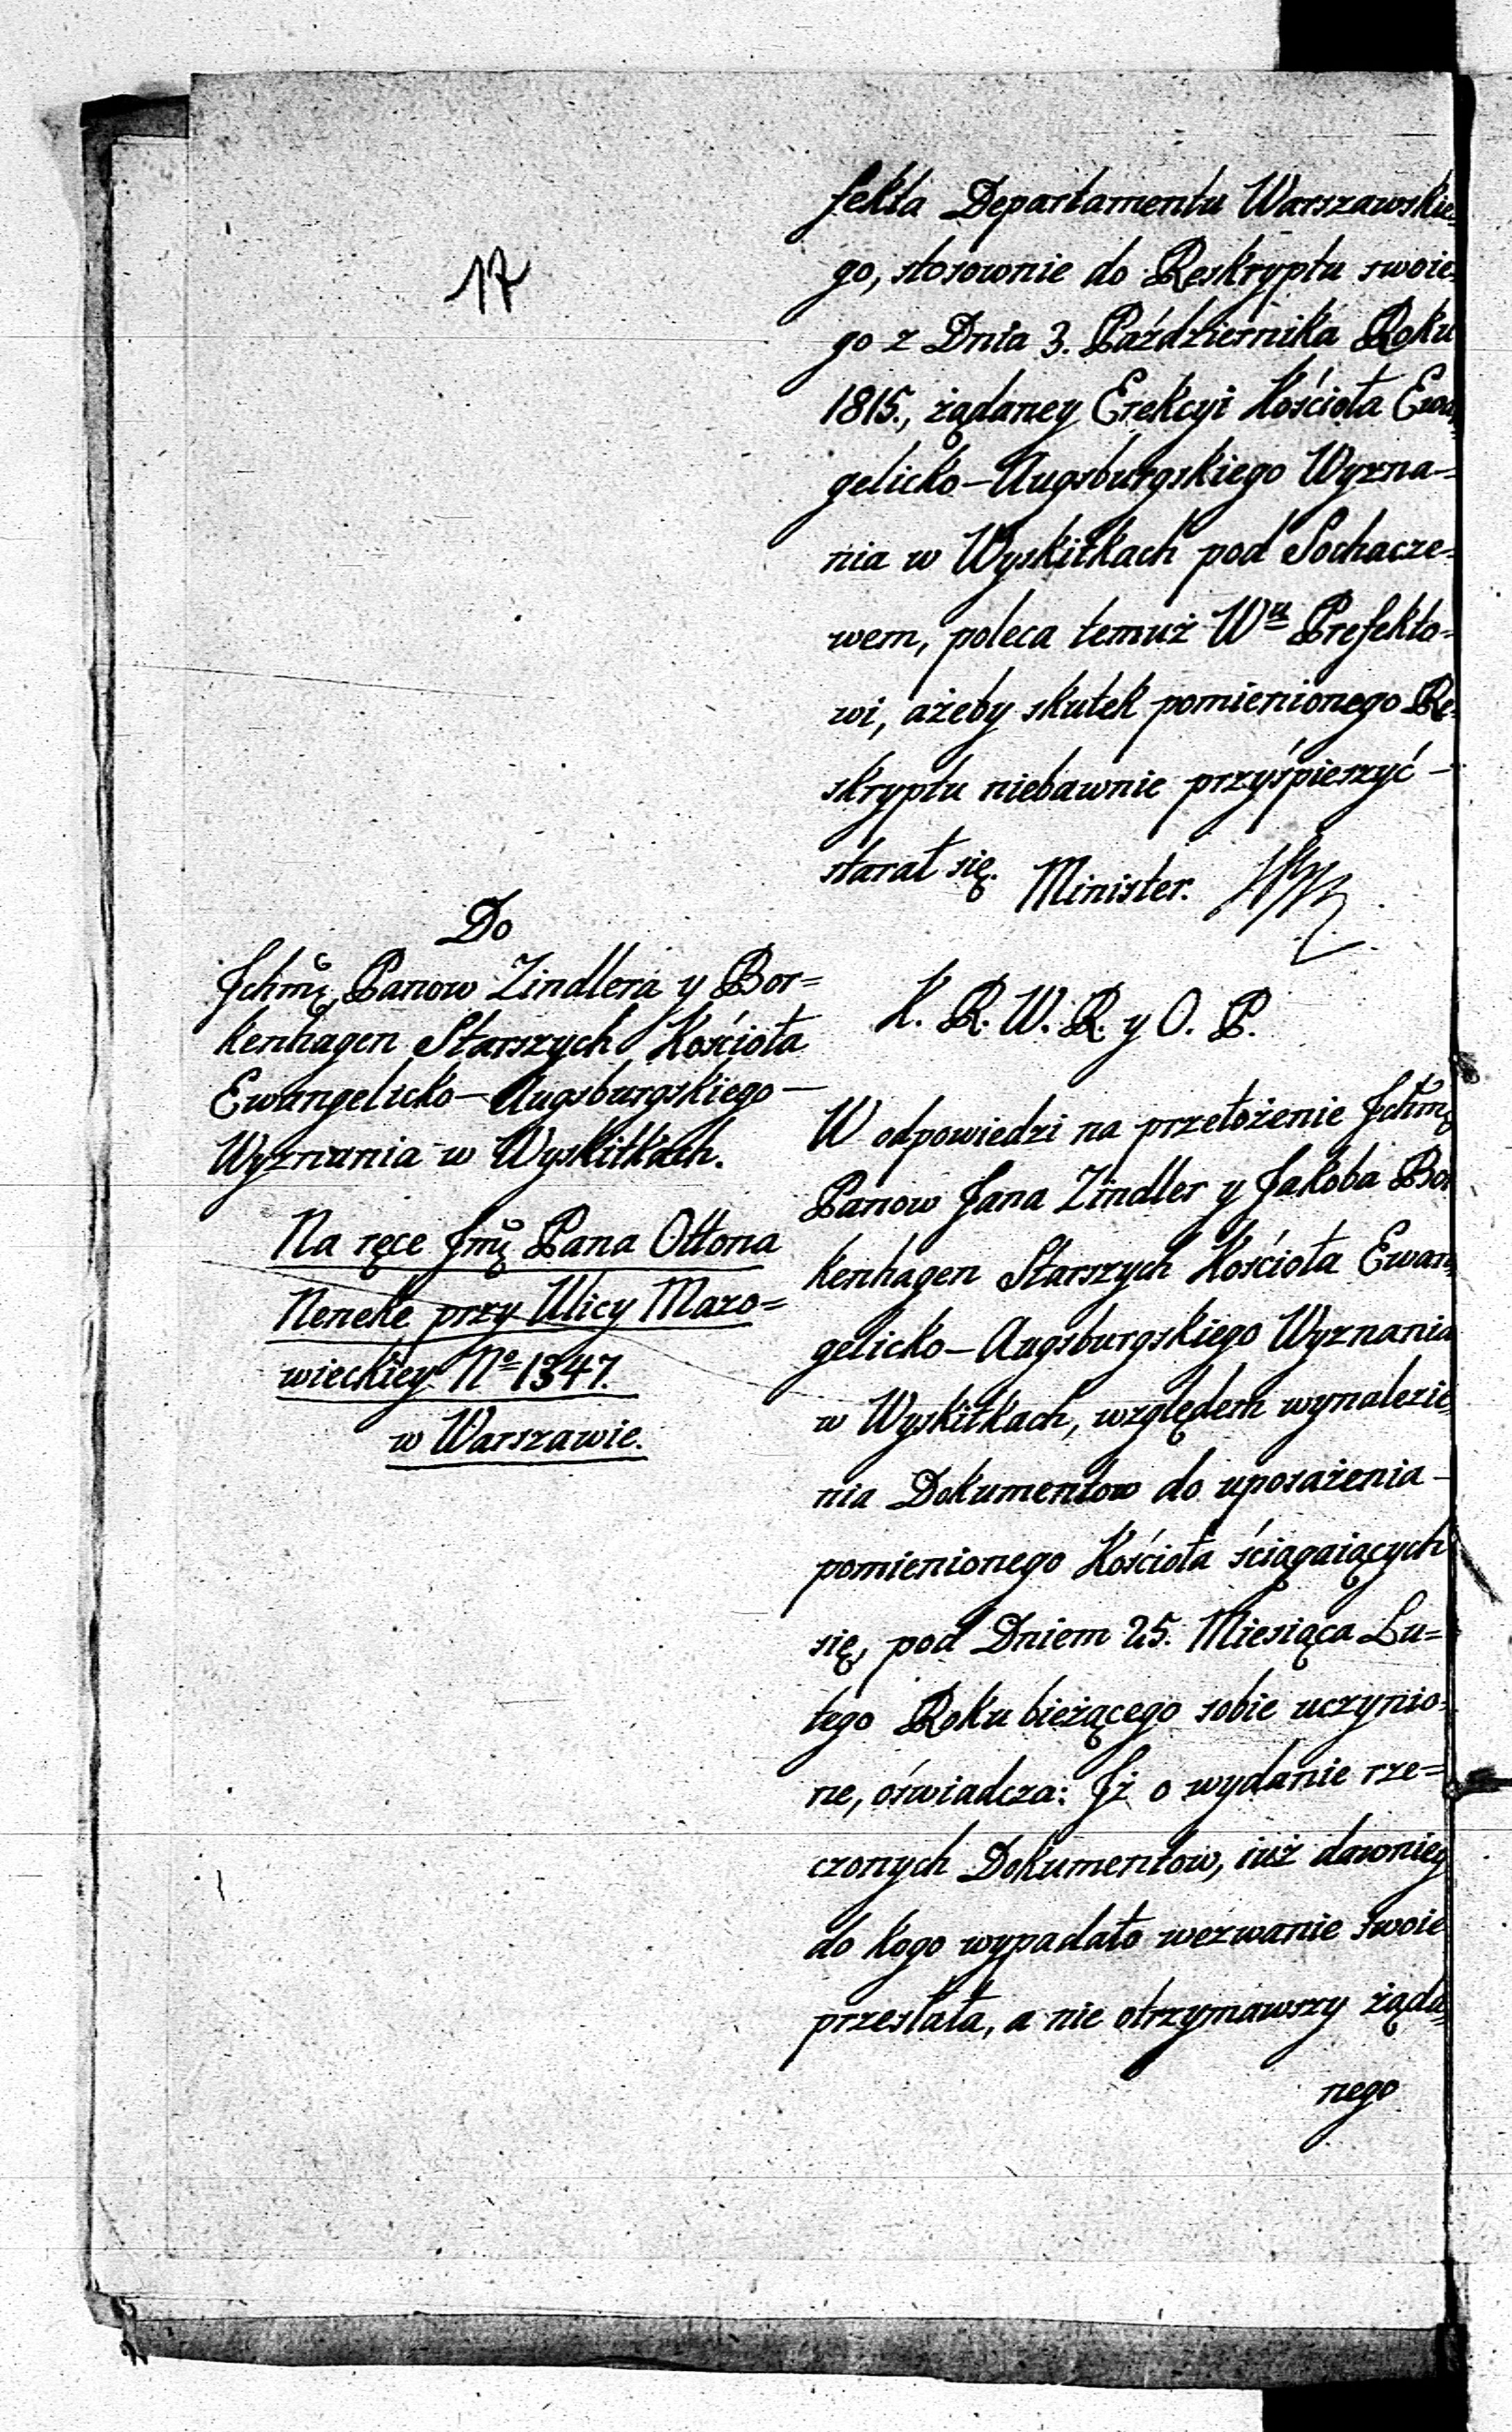 17
fekta Departamentu Warszawskie=
go, stosownie do Reskryptu swoie=
go z Dnia 3. Października Roku
1815., żądaney Erekcyi Kościoła Ewa=
gelicko-Augsburgskiego Wyzna=
nia w Wyskitkach pod Sochacze=
wem, poleca temuż Wu Prefekto=
wi, ażeby skutek pomienionego Re=
skryptu niebawnie przyśpieszyć -
starał się.
Minister.
Do
Jchmę Panow Zindlera y Bor=
kenhagen Starszych Kościoła
Ewangelicko-Augsburgskiego -
Wyznania w Wyskitkach.
Na ręce Jmę Pana Ottona
Neneke przy Ulicy Mazo=
wieckiey No 1347.
w Warszawie.
K. R. W. R. y O. P.
W odpowiedzi na przełożenie Jchmę
Panow Jana Zindler y Jakoba Bor
kenhagen Starszych Kościoła Ewan=
gelicko-Augsburgskiego Wyznania
w Wyskitkach, względem wynalezie=
nia Dokumentow do uposażenia -
pomienionego Kościoła ściągaiących
się, pod Dniem 25. Miesiąca Lu=
tego Roku bieżącego sobie uczynio=
ne, oświadcza: Jż o wydanie rze=
czonych Dokumentow, iuż dawniey
do kogo wypadało wezwanie swoie
przesłała, a nie otrzymawszy żąda=
nego